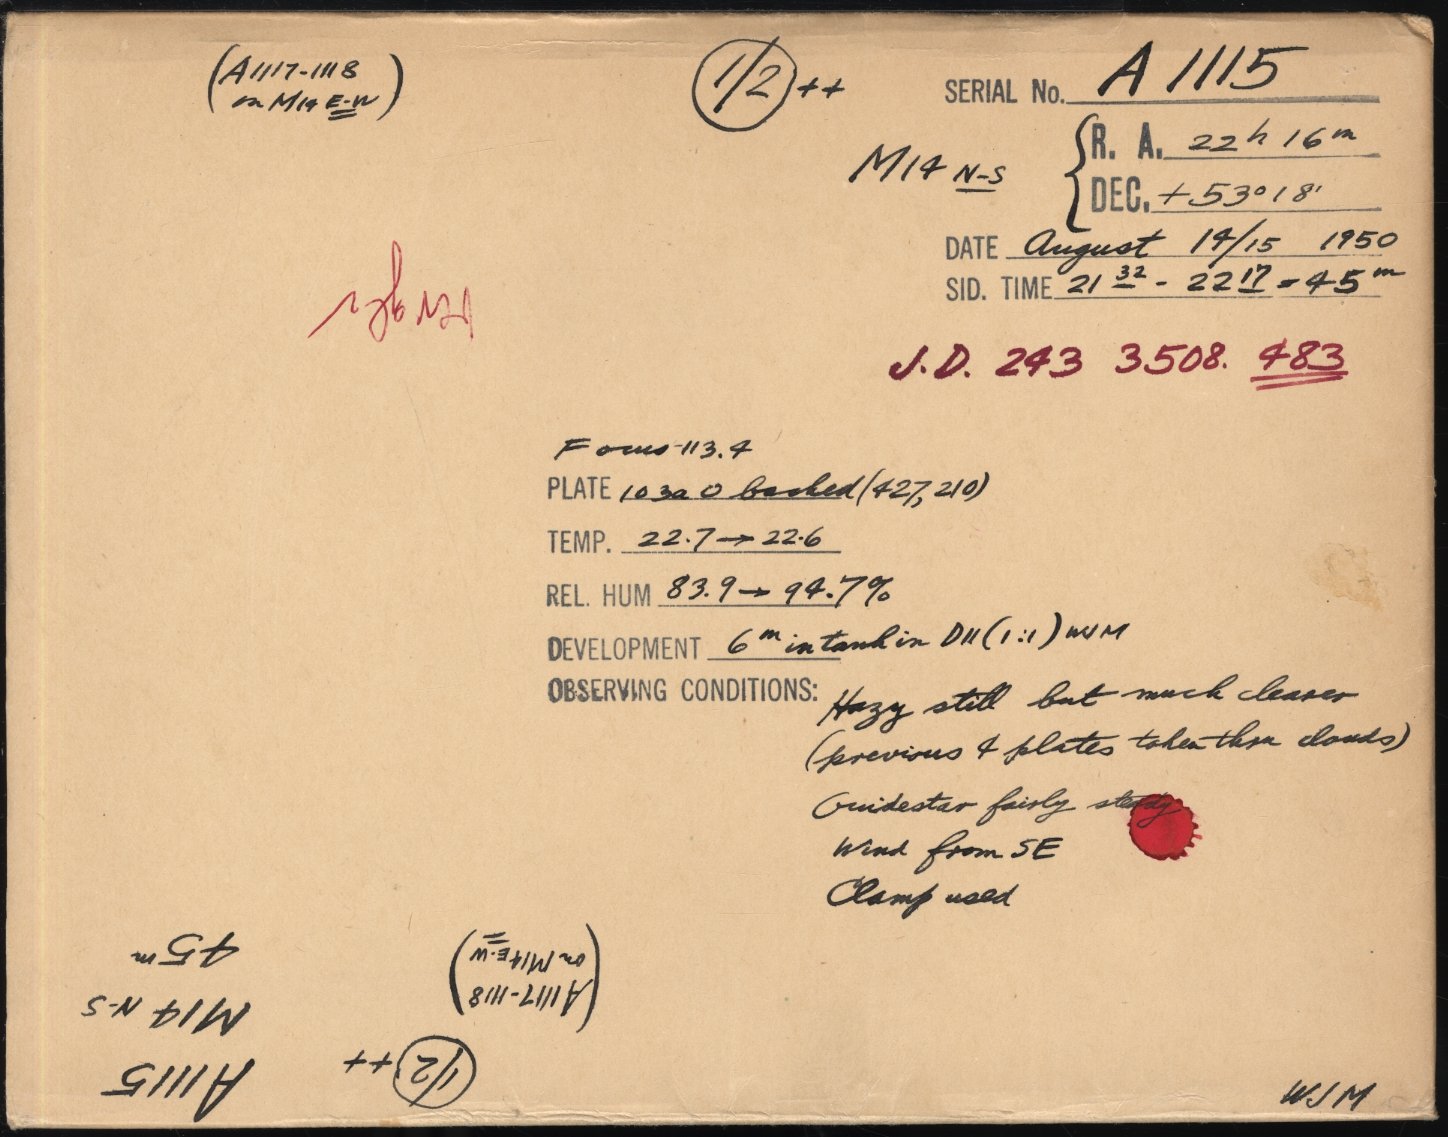 (A1117-1118
on M14 E-W)
1/2 ++
SERIAL No. A 1115
M14 N-S
R. A. 22h 16m
DEC. +53° 18'
DATE August 14/15 1950
SID. TIME 21 32 - 22 17 = 45m
J.D. 243 3508. 483
Focus 113.4
PLATE 103a O backed (427, 210)
TEMP. 22.7 → 22.6
REL. HUM 83.9 → 94.7%
DEVELOPMENT 6m in tank in D11 (1:1) WJM
OBSERVING CONDITIONS:
Hazy still but much clearer
(previous 4 plates taken thru clouds)
Guidestar fairly steady
Wind from SE
Clamp used
A1115
M14 N-S
45m
1/2 ++
(A1117-1118
on M14 E-W)
WJM